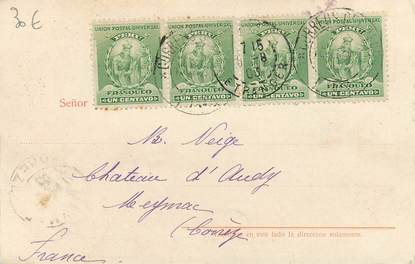 30€
UNION POSTAL UNIVERSAL UNION POSTAL UNIVERSAL UNION POSTAL UNIVERSAL UNION POSTAL UNIVERSAL
PERU PERU PERU PERU
FRANQUEO FRANQUEO FRANQUEO FRANQUEO
UN CENTAVO UN CENTAVO UN CENTAVO UN CENTAVO
ETRANGER
Señor
M. Neige
Chateau d'Audy
Meymac
(Corrèze)
en este lado la direccion solamente.
France